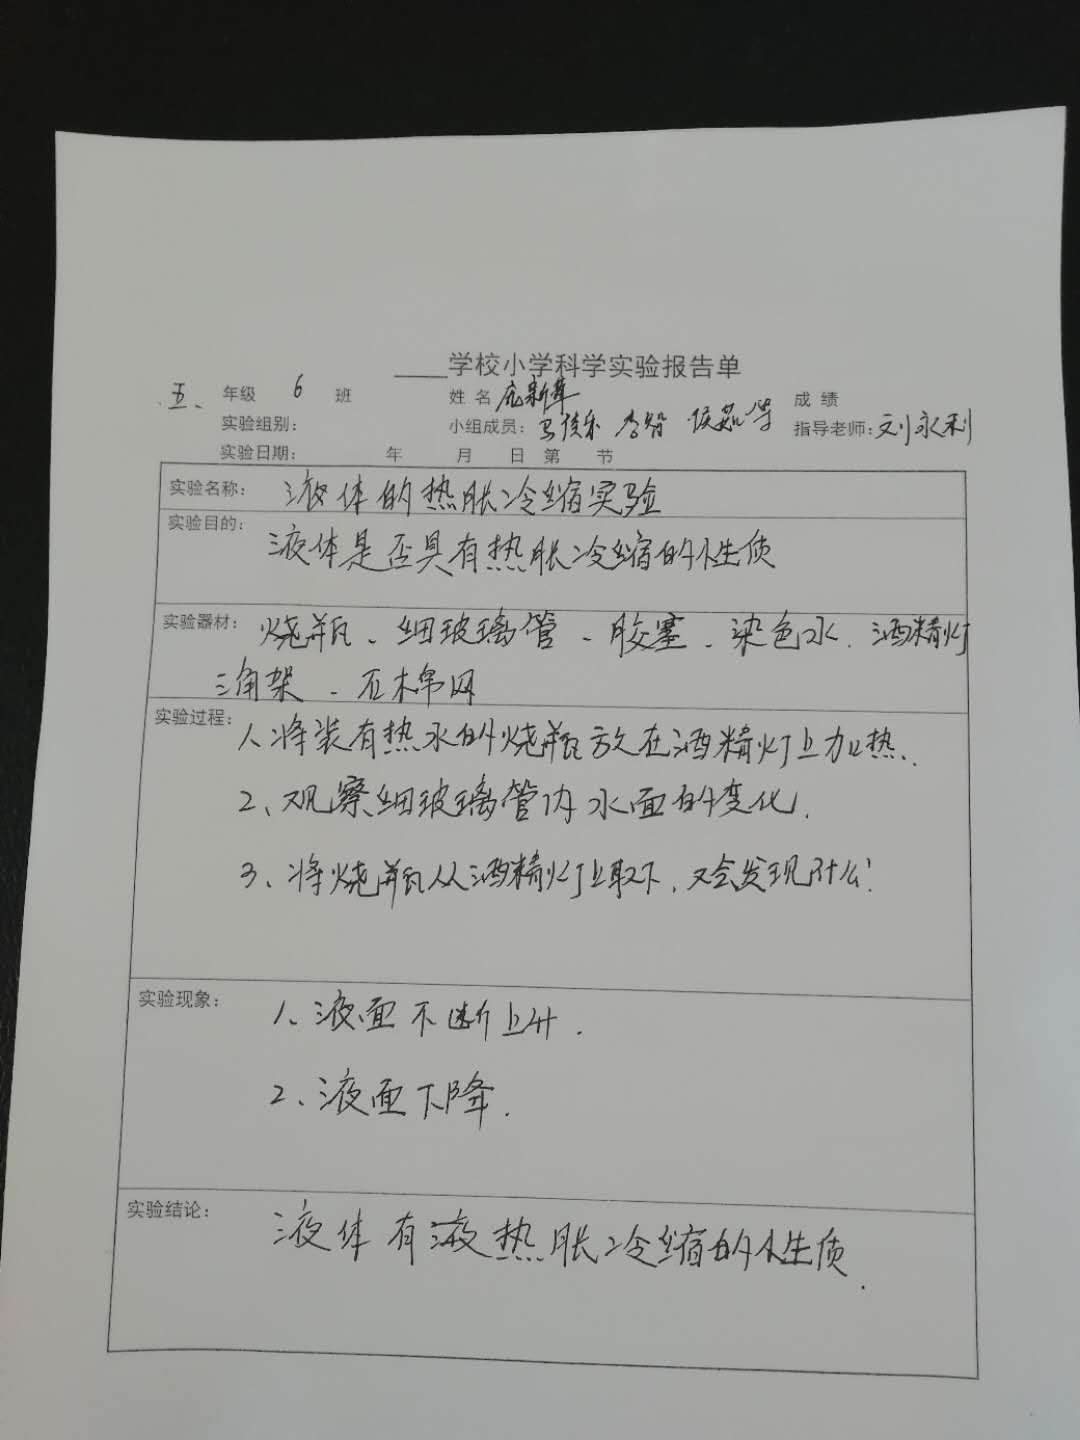 ____学校小学科学实验报告单
五、年级 6 班 姓名 成绩
实验组别： 小组成员： 李智 指导老师：刘永利
实验日期： 年 月 日 第 节
实验名称： 液体的热胀冷缩实验
实验目的： 液体是否具有热胀冷缩的性质
实验器材： 烧瓶、细玻璃管、胶塞、染色水、酒精灯
三角架、石木帛网
实验过程： 1、将装有热水的烧瓶放在酒精灯上加热.
2、观察细玻璃管内水面的变化.
3、将烧瓶从酒精灯上取下,又会发现什么?
实验现象： 1、液面不断上升.
2、液面下降.
实验结论： 液体有液热胀冷缩的性质.